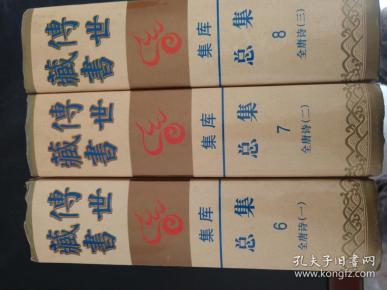 傳世藏書
集库
总集
8
全唐诗(三)
傳世藏書
集库
总集
7
全唐诗(二)
傳世藏書
集库
总集
6
全唐诗(一)
孔夫子旧书网